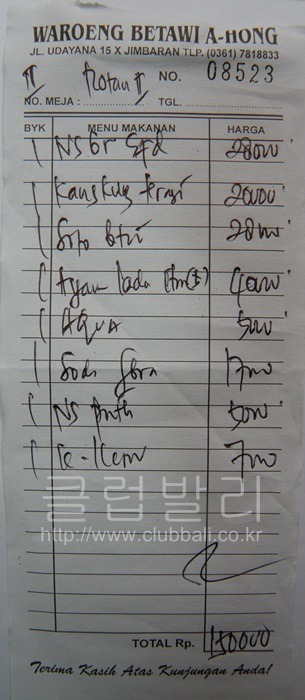 WAROENG BETAWI A-HONG
JL. UDAYANA 15 X JIMBARAN TLP. (0361) 7818833
II Rotan II NO. 08523
NO. MEJA : TGL.
BYK MENU MAKANAN HARGA
1 NS Gr Sfd 28000
1 Kangkung 20000
1 Soto 28000
1 Ayam lada 40000
1 AQUA 5000
1 Soda Gbra 17000
1 NS puth 5000
1 Te - 7000
클럽발리
http://www.clubbali.co.kr
TOTAL Rp. 150000
Terima Kasih Atas Kunjungan Anda!